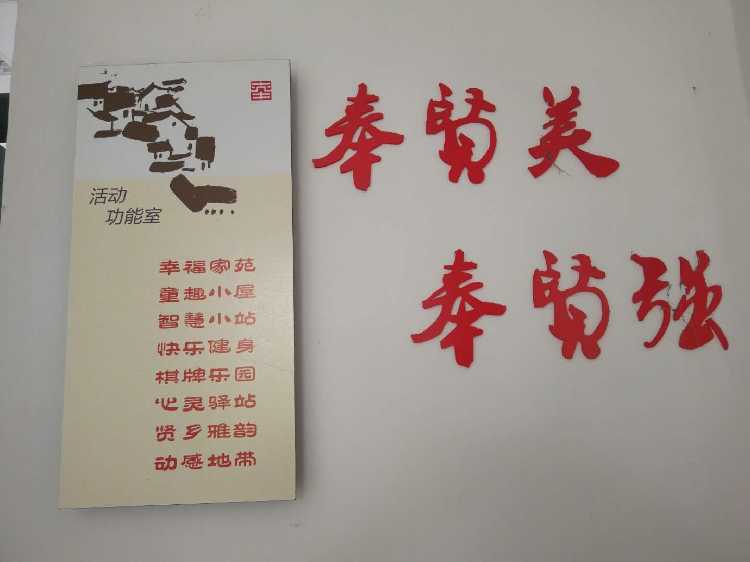 活动
功能室
幸福家苑
童趣小屋
智慧小站
快乐健身
棋牌乐园
心灵驿站
贤乡雅韵
动感地带
奉贤美
奉贤强